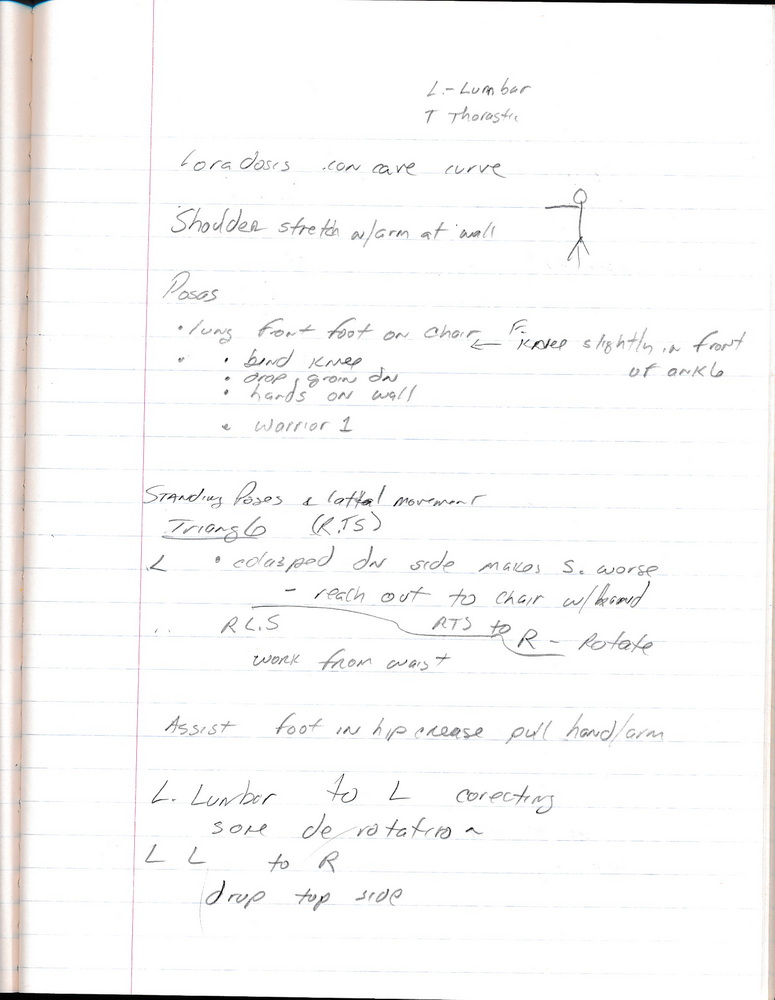 L.- Lumbar
T Thorastic
Loradosis concave curve
Shoulder stretch w/arm at wall
Poses
• lung front foot on chair ← F. knee slightly in front
of ankle
• • bend knee
• drop groin dn
• hands on wall
• Warrior 1
Standing Poses & lattal movement
Triangle (R.TS)
L • colasped dn side makes S. worse
- reach out to chair w/
.. R L.S RTS to R - Rotate
work from waist
Assist foot in hip crease pull hand/arm
L. Lumbar to L corecting
some de rotation
L L to R
drop top side